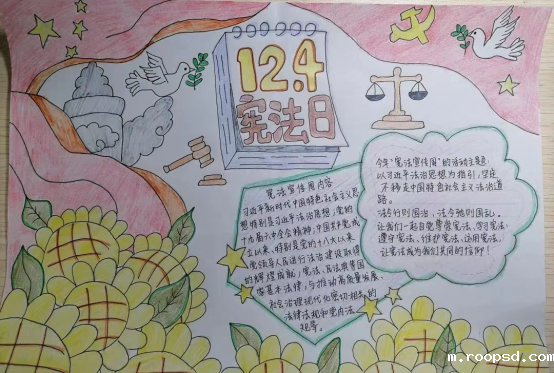 12.4
宪法日
宪法宣传周内容
习近平新时代中国特色社会主义思
想特别是习近平法治思想；党的
十九届六中全会精神；中国共产党成
立以来，特别是党的十八大以来
党领导人民进行法治建设取得
的辉煌成就；宪法、民法典等国
家基本法律；与推动高质量发展、
社会治理现代化密切相关的
法律法规和党内法
规等。
今年“宪法宣传周”的活动主题：
以习近平法治思想为指引，坚定
不移走中国特色社会主义法治道
路。
法令行则国治，法令弛则国乱。
让我们一起自觉尊崇宪法、学习宪法、
遵守宪法、维护宪法、运用宪法，
让宪法成为我们共同的信仰！
m.roopsd.com